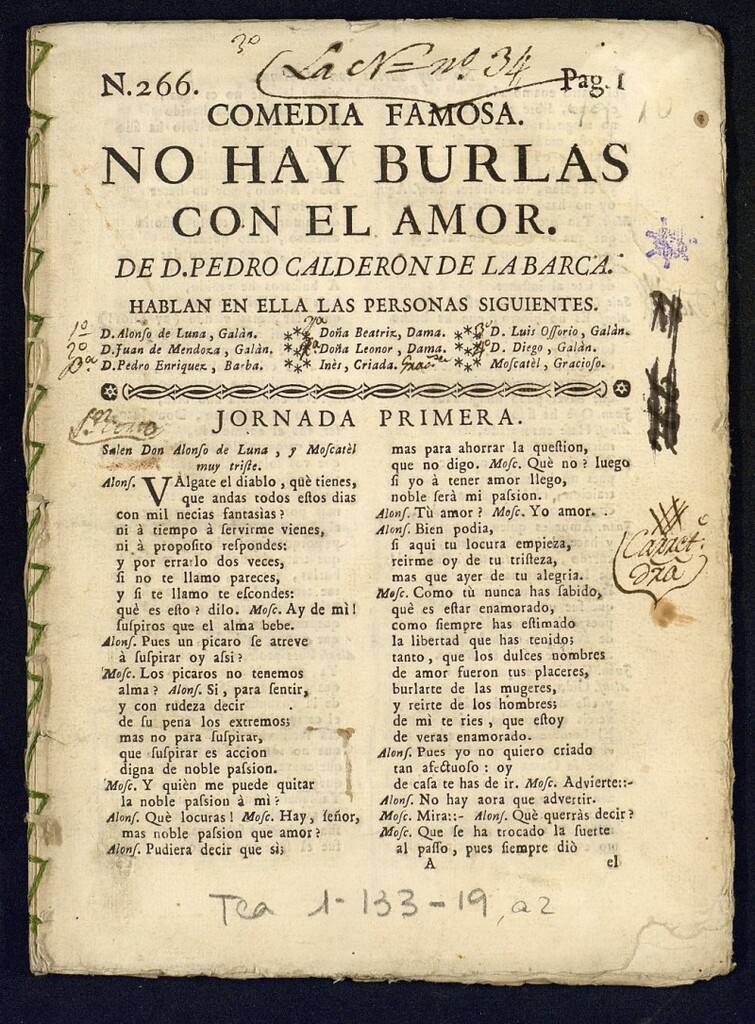 3º
La N= nº 34
N.266. Pag. 1
COMEDIA FAMOSA.
NO HAY BURLAS
CON EL AMOR.
DE D. PEDRO CALDERON DE LA BARCA.
HABLAN EN ELLA LAS PERSONAS SIGUIENTES.
1º D. Alonſo de Luna, Galàn. ** Doña Beatriz, Dama. ** D. Luis Oſſorio, Galàn.
2º D. Juan de Mendoza, Galàn. ** Doña Leonor, Dama. ** D. Diego, Galàn.
D. Pedro Enriquez, Barba. ** Inès, Criada. ** Moſcatèl, Gracioſo.
JORNADA PRIMERA.
Salen Don Alonſo de Luna, y Moſcatèl
muy triſte.
Alonſ. VAlgate el diablo, què tienes,
que andas todos eſtos dias
con mil necias fantasìas?
ni à tiempo à ſervirme vienes,
ni à propoſito reſpondes:
y por errarlo dos veces,
ſi no te llamo pareces,
y ſi te llamo te eſcondes:
què es eſto? dilo. Moſc. Ay de mì!
ſuſpiros que el alma bebe.
Alonſ. Pues un picaro ſe atreve
à ſuſpirar oy aſsi?
Moſc. Los picaros no tenemos
alma? Alonſ. Si, para ſentir,
y con rudeza decir
de ſu pena los extremos;
mas no para ſuſpirar,
que ſuſpirar es accion
digna de noble paſsion.
Moſc. Y quièn me puede quitar
la noble paſsion à mì?
Alonſ. Què locuras! Moſc. Hay, ſeñor,
mas noble paſsion que amor?
Alonſ. Pudiera decir que sì;
mas para ahorrar la queſtion,
que no digo. Moſc. Què no? luego
ſi yo à tener amor llego,
noble ſerà mi paſsion.
Alonſ. Tù amor? Moſc. Yo amor.
Alonſ. Bien podia,
ſi aqui tu locura empieza,
reirme oy de tu triſteza,
mas que ayer de tu alegria.
Moſc. Como tù nunca has ſabido,
què es eſtar enamorado,
como ſiempre has eſtimado
la libertad que has tenido;
tanto, que los dulces nombres
de amor fueron tus placeres,
burlarte de las mugeres,
y reirte de los hombres;
de mì te ries, que eſtoy
de veras enamorado.
Alonſ. Pues yo no quiero criado
tan afectuoſo: oy
de caſa te has de ir. Moſc. Advierte::-
Alonſ. No hay aora que advertir.
Moſc. Mira::- Alonſ. Què querràs decir?
Moſc. Que ſe ha trocado la ſuerte
al paſſo, pues ſiempre diò
A el
Tea 1-133-19, a2